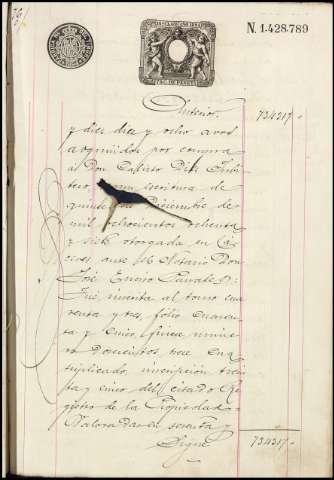 N. 1.428.789
Anterior, 734317.
y diez diez y ocho avos
adquiridos por compra
á Don Calisto
escritura de
quince de Diciembre de
mil ochocientos ochenta
y siete otorgada en Cá-
ceres ante el Notario Don
José Enciso
inscrita al tomo cua-
renta y tres, fólio cuaren-
ta y cinco, finca núme-
ro doscientos, trece cua-
druplicado, inscripción trein-
ta y cinco del citado Re-
gistro de la Propiedad.
Valorada en sesenta y
Sigue 734317.